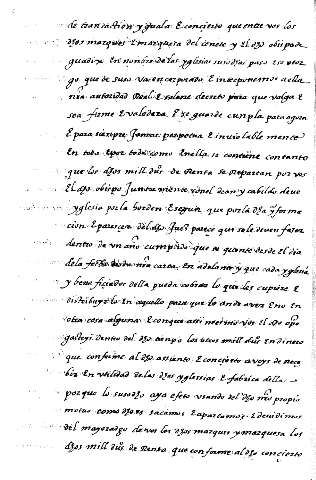 de transaction y iguala E concierto que entre vos los
dhos marques E marquesa del cenete y El dho obispo de
guadix En nonbre de las yglesias suso dhas paso En
go que de suso va encorporado E interponemos a ella
nra autoridad Real E solene decreto para que valga E
sea firme E valedera E se guarde cunpla para agora
E para sienpre Jamas perpetua E inviolable mente
En todo E por todo como En ella se contiene con tanto
que los dhos mill dus de Renta se Repartan por vos
El dho obispo Junta mente con el dean y cabildo de
yglesia por la horden E segun que por la dha ynforma
cion E parescer del dho Juez paresce que se deven fazer
dentro de un año cumplido que se quente desde el dia
de la fecha desta nra carta En adelante y que cada yglesia
y beneficiados della pueda cobrar lo que les cupiere E
distribuyrlo En aquello para que lo an de aver E no En
otra cosa alguna E con que assi mismo vos El dho obpo
gasteys dentro del dho tienpo los otros mill dus En dinero
que conforme al dho assiento E concierto aveys de rece
bir En utilidad de las dhas yglesias E fabrica della
por que lo suso dho aya efeto usando del dho nro propio
motuo como dho es sacamos E apartamos E devidimos
del mayoradgo de vos los dhos marques y marquesa los
dhos mill dus de Renta que conforme al dho concierto